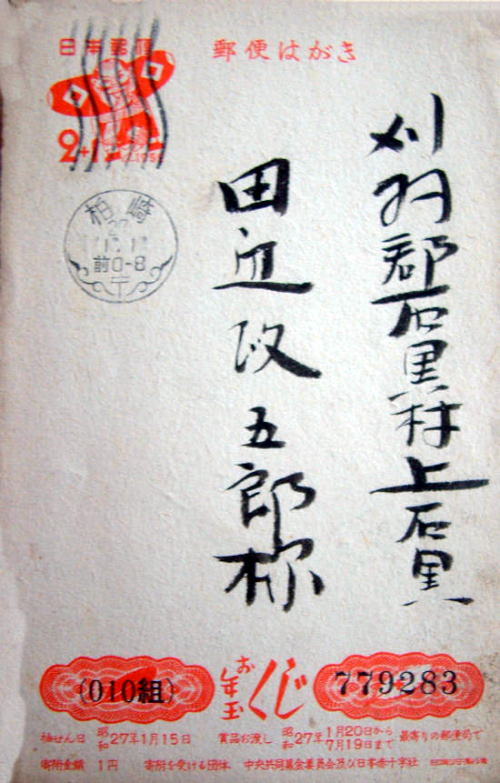 日本郵便
郵便はがき
2+1
1952
柏崎
27
前0-8
刈羽郡石黒村上石黒
田辺政五郎様
(010組)
お年玉
くじ
779283
抽せん日 昭和27年1月15日 賞品お渡し 昭和27年1月20日から7月19日まで 最寄りの郵便局で
寄附金額 1円 寄附を受ける団体 中央共同募金委員会及び日本赤十字社